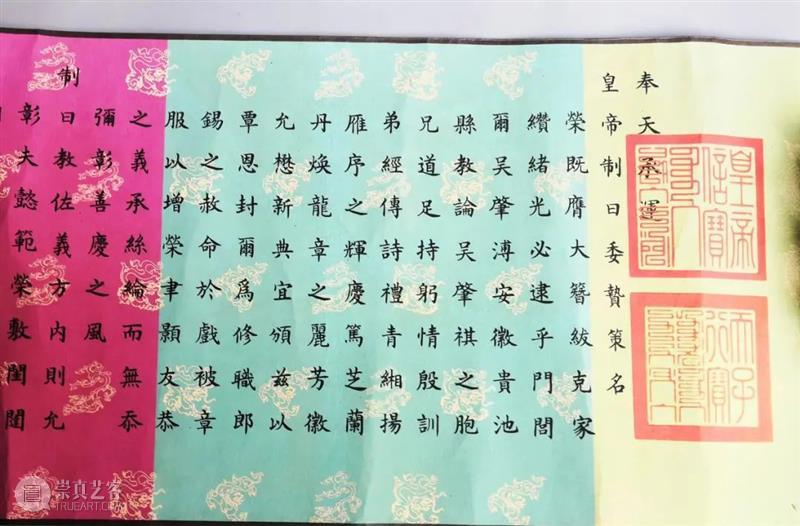 奉天承運
皇帝制曰委贄策名
榮既膺大簪紱克家
纘緒光必逮乎門閭
爾吳肇溥安徽貴池
縣教諭吳肇祺之胞
兄道足持躬情殷訓
弟經傳詩禮青緗揚
雁序之輝慶篤芝蘭
丹煥龍章之麗芳徽
允懋新典宜頒茲以
覃恩封爾為修職郎
錫之敕命於戲被章
服以增榮聿顯友恭
之義承絲綸而無忝
彌彰善慶之風
制曰教佐義方內則允
彰夫懿範榮敷閨閫
皇帝信寶
天子行寶
崇真艺客